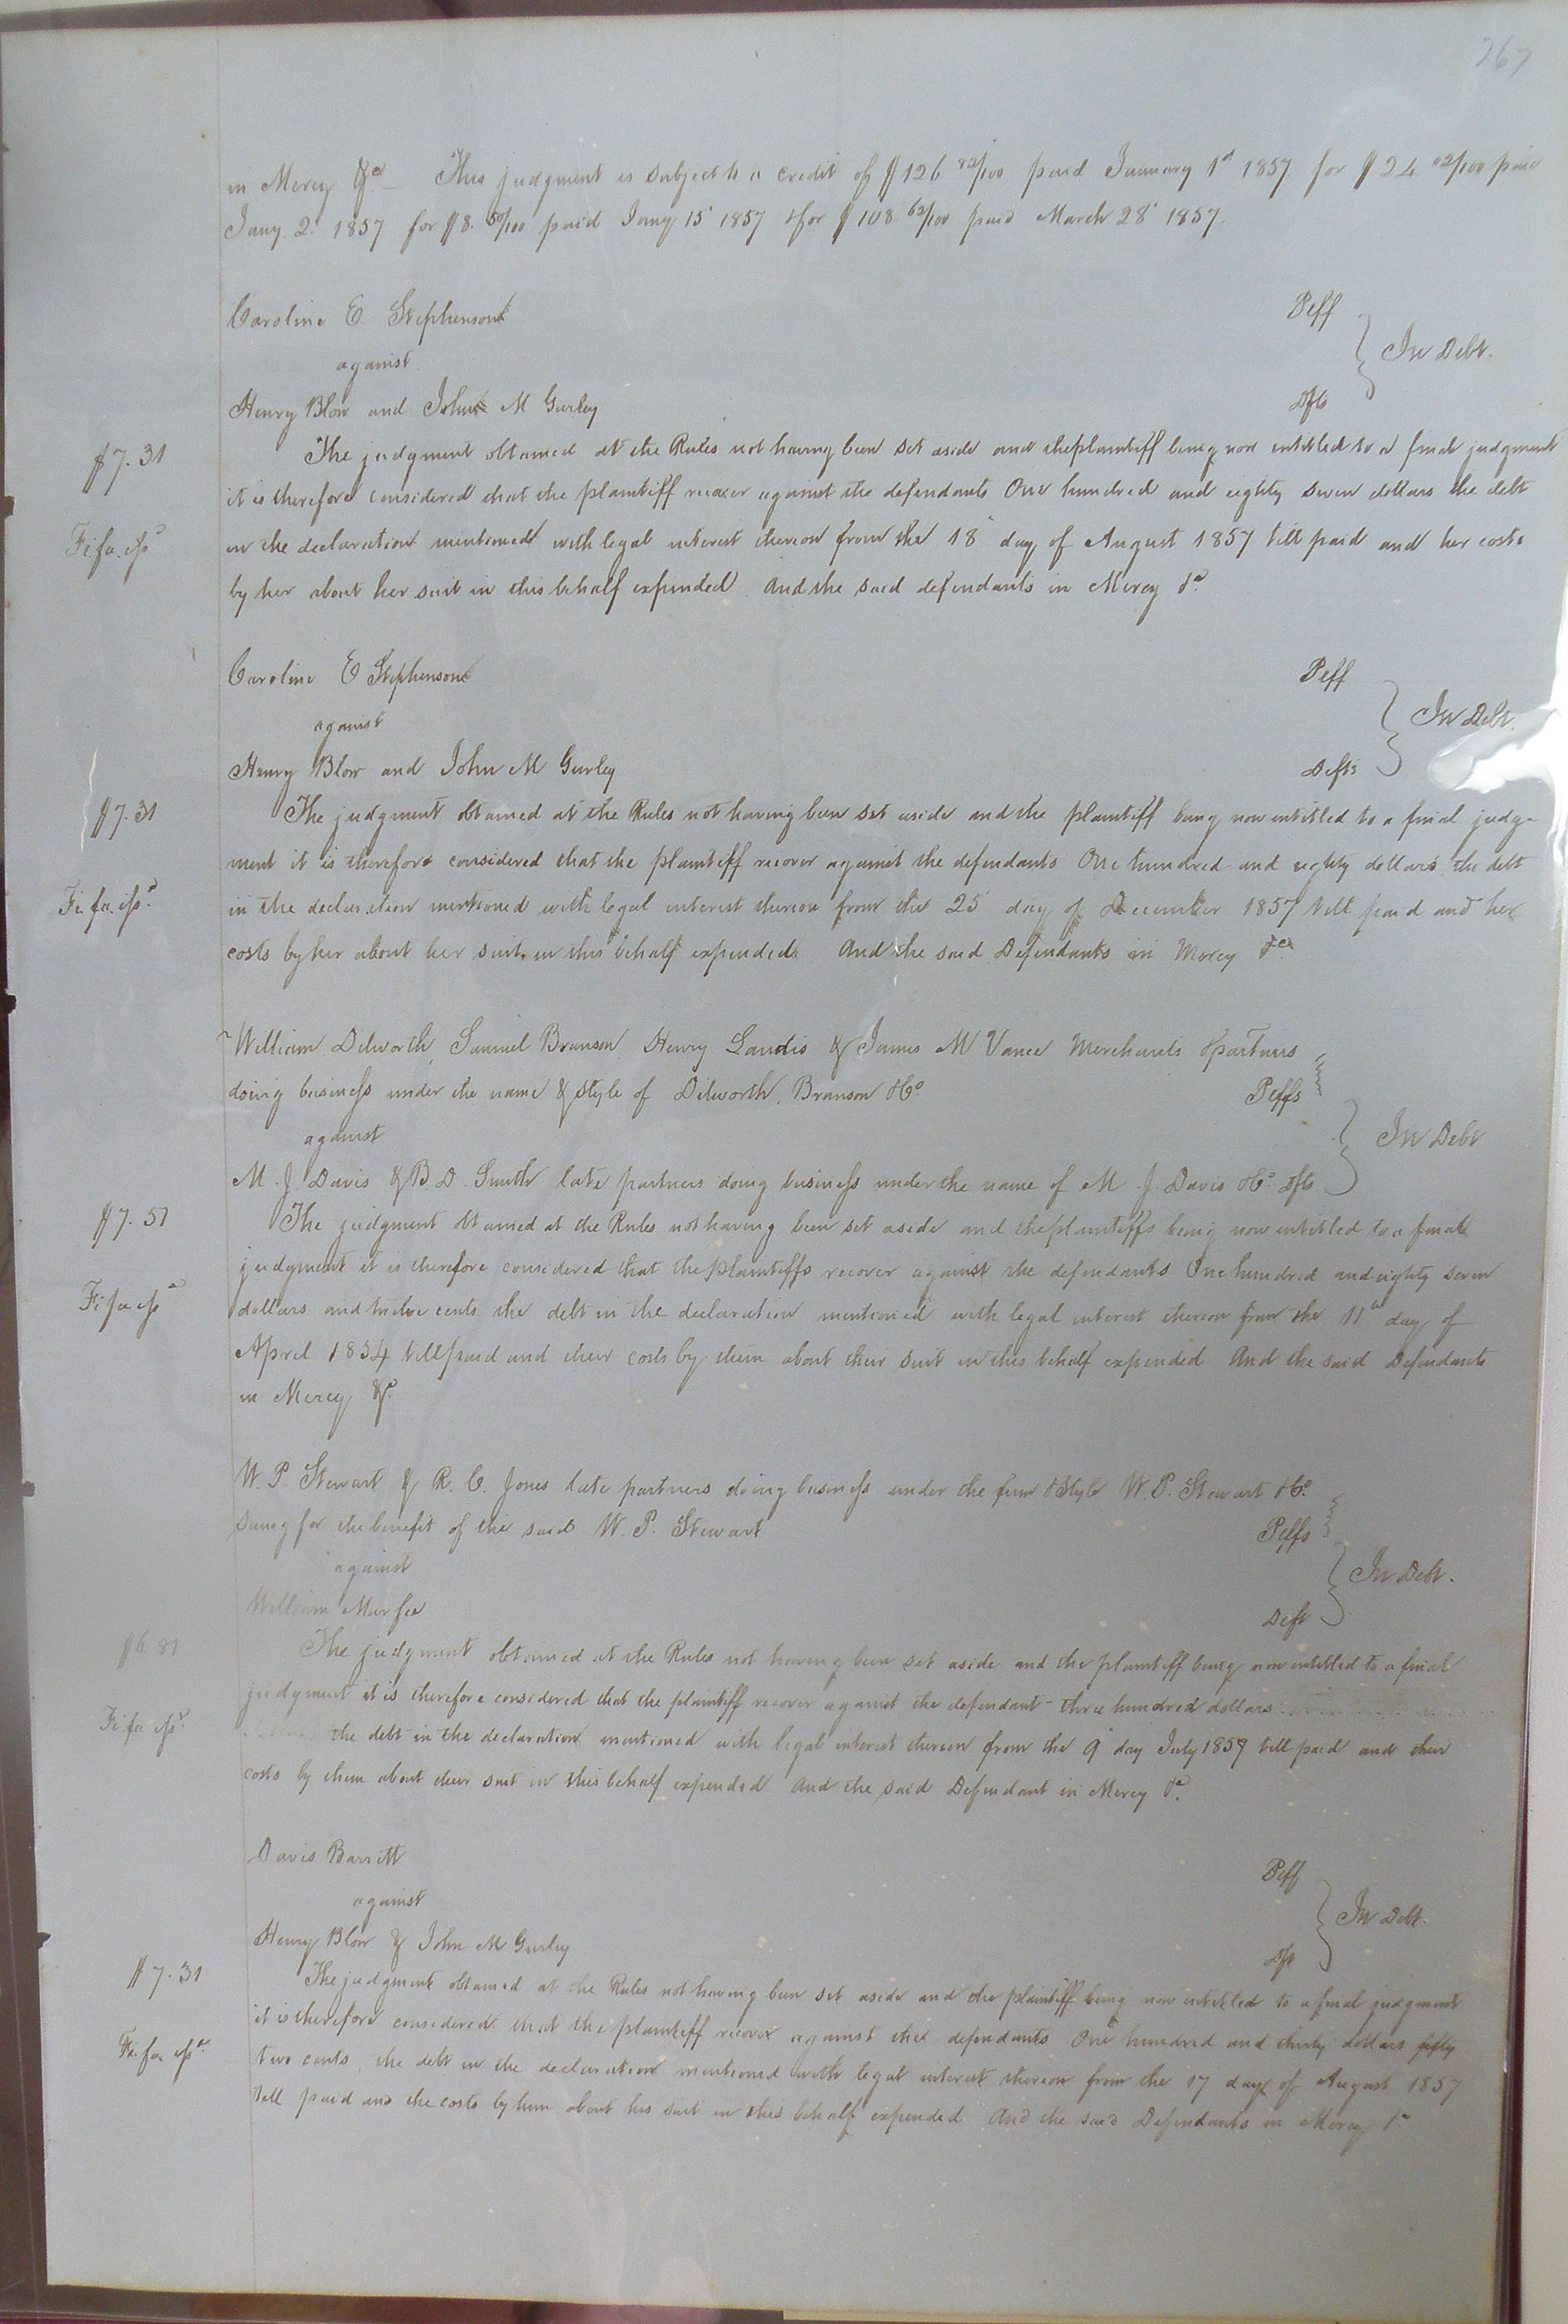 267
in Mercy &c — This judgment is subject to a credit of $126 82/100 paid January 1st 1857. for $24 02/100 paid
Jany 2d 1857 for $8. 50/100 paid Jany 15 1857 & for $108 62/100 paid March 28 1857.
Caroline E. Stephenson Plff
against In Debt.
Henry Blow and John M Gurley Dfts
$7.31 The judgment obtained at the Rules not having been set aside and the plaintiff being now entitled to a final judgment
it is therefore considered that the plaintiff recover against the defendants One hundred and eighty seven dollars the debt
Fi. fa. issd in the declaration mentioned with legal interest thereon from the 18 day of August 1857 till paid and her costs
by her about her suit in this behalf expended. And the said defendants in Mercy &c.
Caroline E Stephenson Plff
against In Debt.
Henry Blow and John M Gurley Defts
$7.31 The judgment obtained at the Rules not having been set aside and the plaintiff being now entitled to a final judg-
ment it is therefore considered that the plaintiff recover against the defendants One hundred and eighty dollars the debt
Fi. fa. issd. in the declaration mentioned with legal interest thereon from the 25 day of December 1857 till paid and her
costs by her about her suit in this behalf expended. And the said Defendants in Mercy &c.
William Dilworth, Samuel Branson Henry Landis & James M Vance Merchants & partners
doing business under the name & style of Dilworth, Branson & Co. Plffs
against In Debt
M. J. Davis & B. D. Smith late partners doing business under the name of M. J. Davis & Co. Dfts
$7.51 The judgment obtained at the Rules not having been set aside and the plaintiffs being now entitled to a final
judgment it is therefore considered that the plaintiffs recover against the defendants One hundred and eighty seven
Fi. fa. issd dollars and twelve cents the debt in the declaration mentioned with legal interest thereon from the 11th day of
April 1854 till paid and their costs by them about their suit in this behalf expended And the said Defendants
in Mercy &c.
W. P. Stewart & R. C. Jones late partners doing business under the firm & style W. P. Stewart & Co.
suing for the benefit of the said W. P. Stewart Plffs
against In Debt.
William Murfee Deft
$6.81 The judgment obtained at the Rules not having been set aside and the plaintiff being now entitled to a final
judgment it is therefore considered that the plaintiff recover against the defendant - three hundred dollars
Fi. fa. issd. the debt in the declaration mentioned with legal interest thereon from the 9 day July 1859 till paid and their
costs by them about their suit in this behalf expended And the said Defendant in Mercy &c.
Davis Barrett Plff
against In Debt.
Henry Blow & John M Gurley Dft
$7.31 The judgment obtained at the Rules not having been set aside and the plaintiff being now entitled to a final judgment
it is therefore considered that the plaintiff recover against the defendants One hundred and thirty dollars fifty
Fi. fa. issd. two cents, the debt in the declaration mentioned with legal interest thereon from the 17 day of August 1857
till paid and the costs by him about his suit in this behalf expended And the said Defendants in Mercy &c.